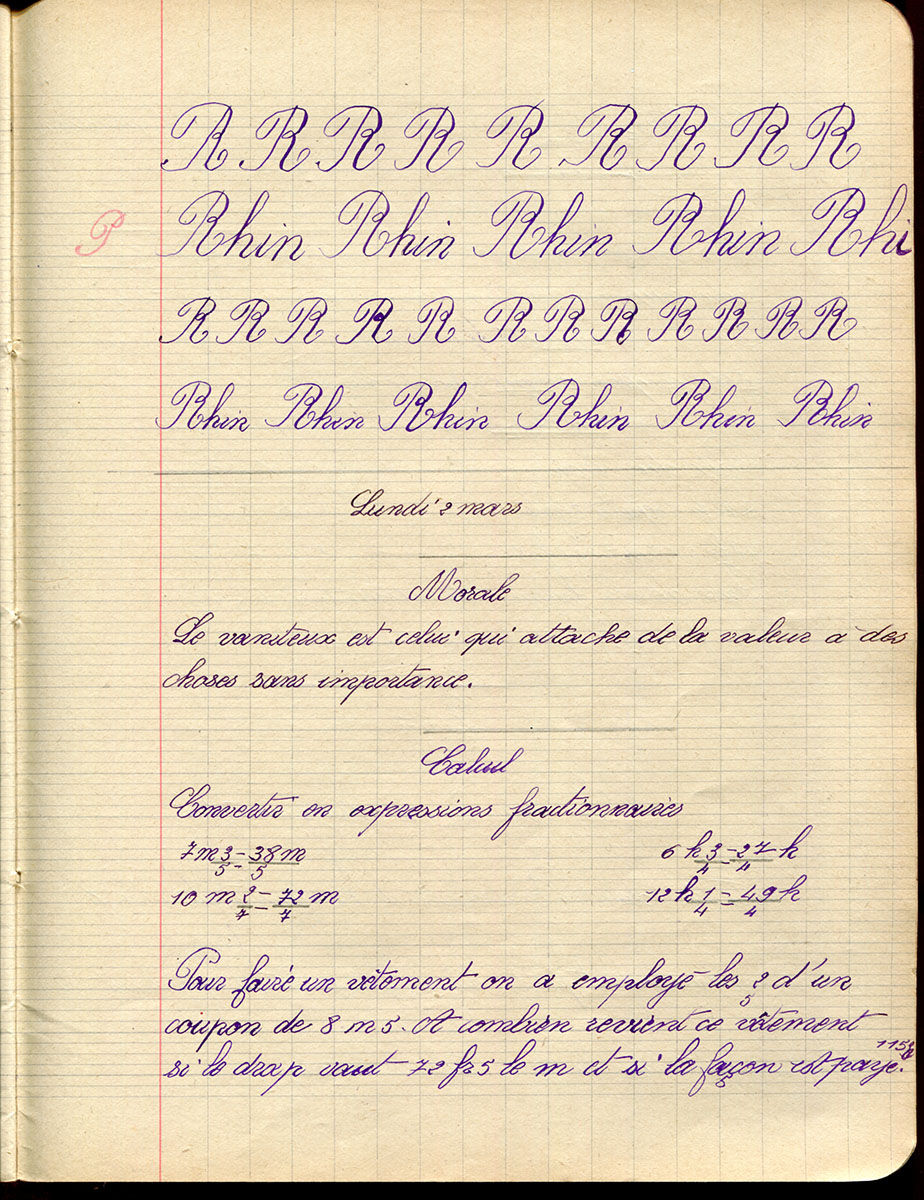 R R R R R R R R R
P
Rhin Rhin Rhin Rhin Rhi
R R R R R R R R R R R R
Rhin Rhin Rhin Rhin Rhin Rhin
Lundi 2 mars
Morale
Le vaniteux est celui qui attache de la valeur à des
choses sans importance.
Calcul
Convertir en expressions fractionnaires
7 m 3/5 = 38/5 m 6 h 3/4 = 27/4 h
10 m 2/7 = 72/7 m 12 h 1/4 = 49/4 h
Pour faire un vêtement on a employé les 2/5 d'un
coupon de 8 m 5. A combien revient ce vêtement
si le drap vaut 72 fr 5 le m et si la façon est payé 115